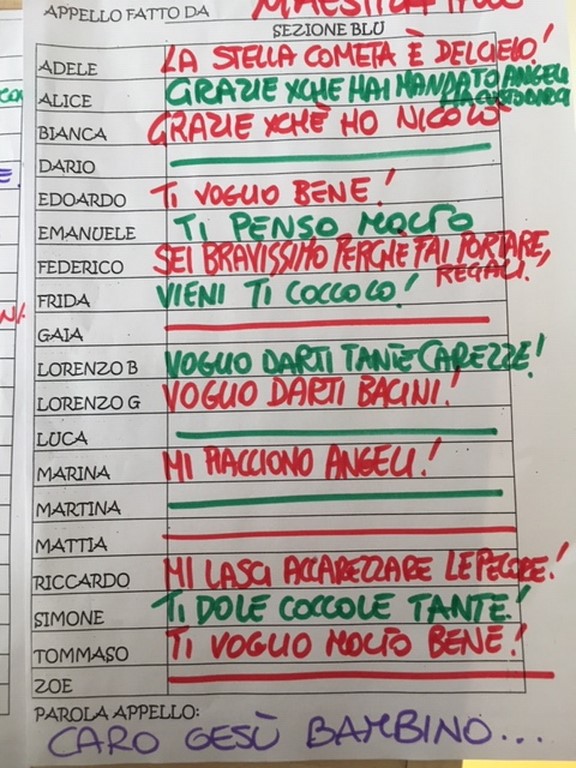 APPELLO FATTO DA MAESTRA
SEZIONE BLU
ADELE LA STELLA COMETA È DEL CIELO!
ALICE GRAZIE XCHE HAI MANDATO ANGELI
BIANCA GRAZIE XCHÈ HO NICOLÒ
DARIO
EDOARDO TI VOGLIO BENE!
EMANUELE TI PENSO MOLTO
FEDERICO SEI BRAVISSIMO PERCHÈ FAI PORTARE,
REGALI!
FRIDA VIENI TI COCCOLO!
GAIA
LORENZO B VOGLIO DARTI TANTE CAREZZE!
LORENZO G VOGLIO DARTI BACINI!
LUCA
MARINA MI PIACCIONO ANGELI!
MARTINA
MATTIA
RICCARDO MI LASCI ACCAREZZARE LE PECORE!
SIMONE TI DOLE COCCOLE TANTE!
TOMMASO TI VOGLIO MOLTO BENE!
ZOE
PAROLA APPELLO:
CARO GESÙ BAMBINO...